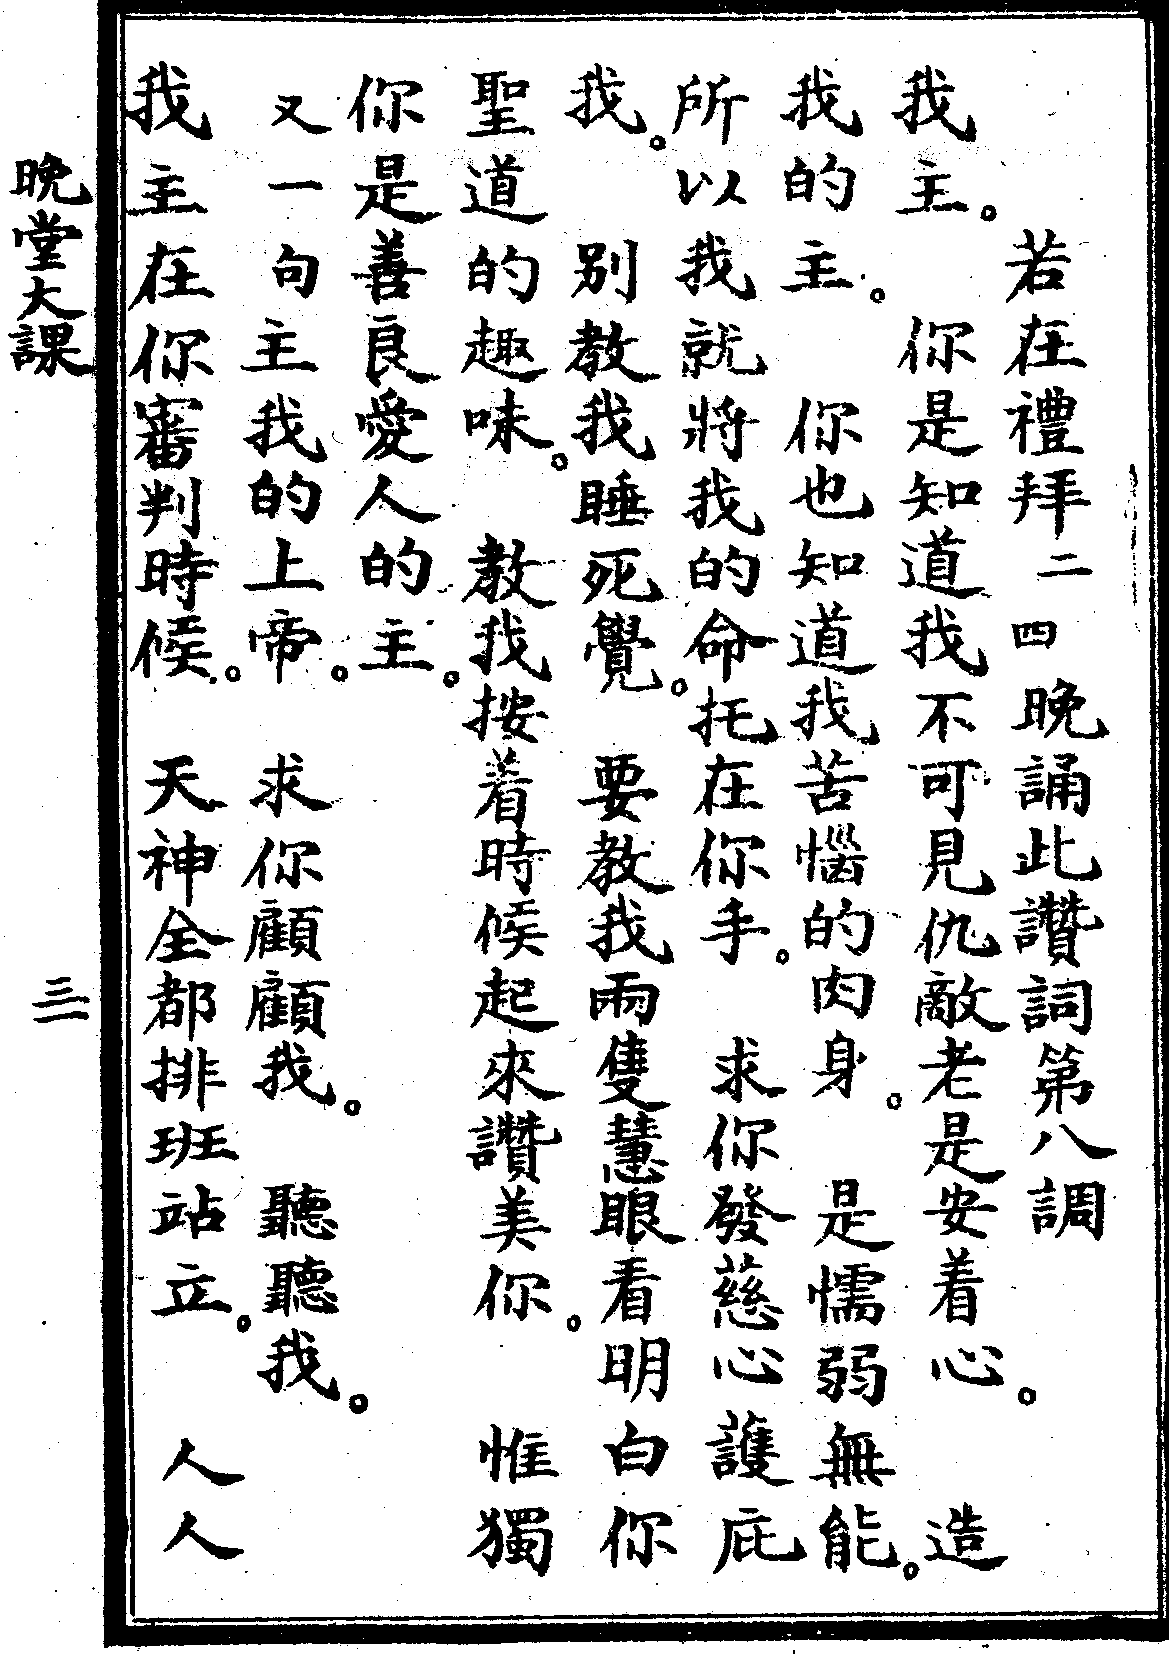 若在禮拜二四晚誦此讚詞第八調
我主。你是知道我不可見仇敵老是安着心。造
我的主。你也知道我苦惱的肉身。是懦弱無能。
所以我就將我的命托在你手。求你發慈心護庇
我。別教我睡死覺。要教我兩隻慧眼看明白你
聖道的趣味。教我按着時候起來讚美你。惟獨
你是善良愛人的主。
又一句主我的上帝。求你顧顧我。聽聽我。
我主在你審判時候。天神全都排班站立。人人
晚堂大課
三